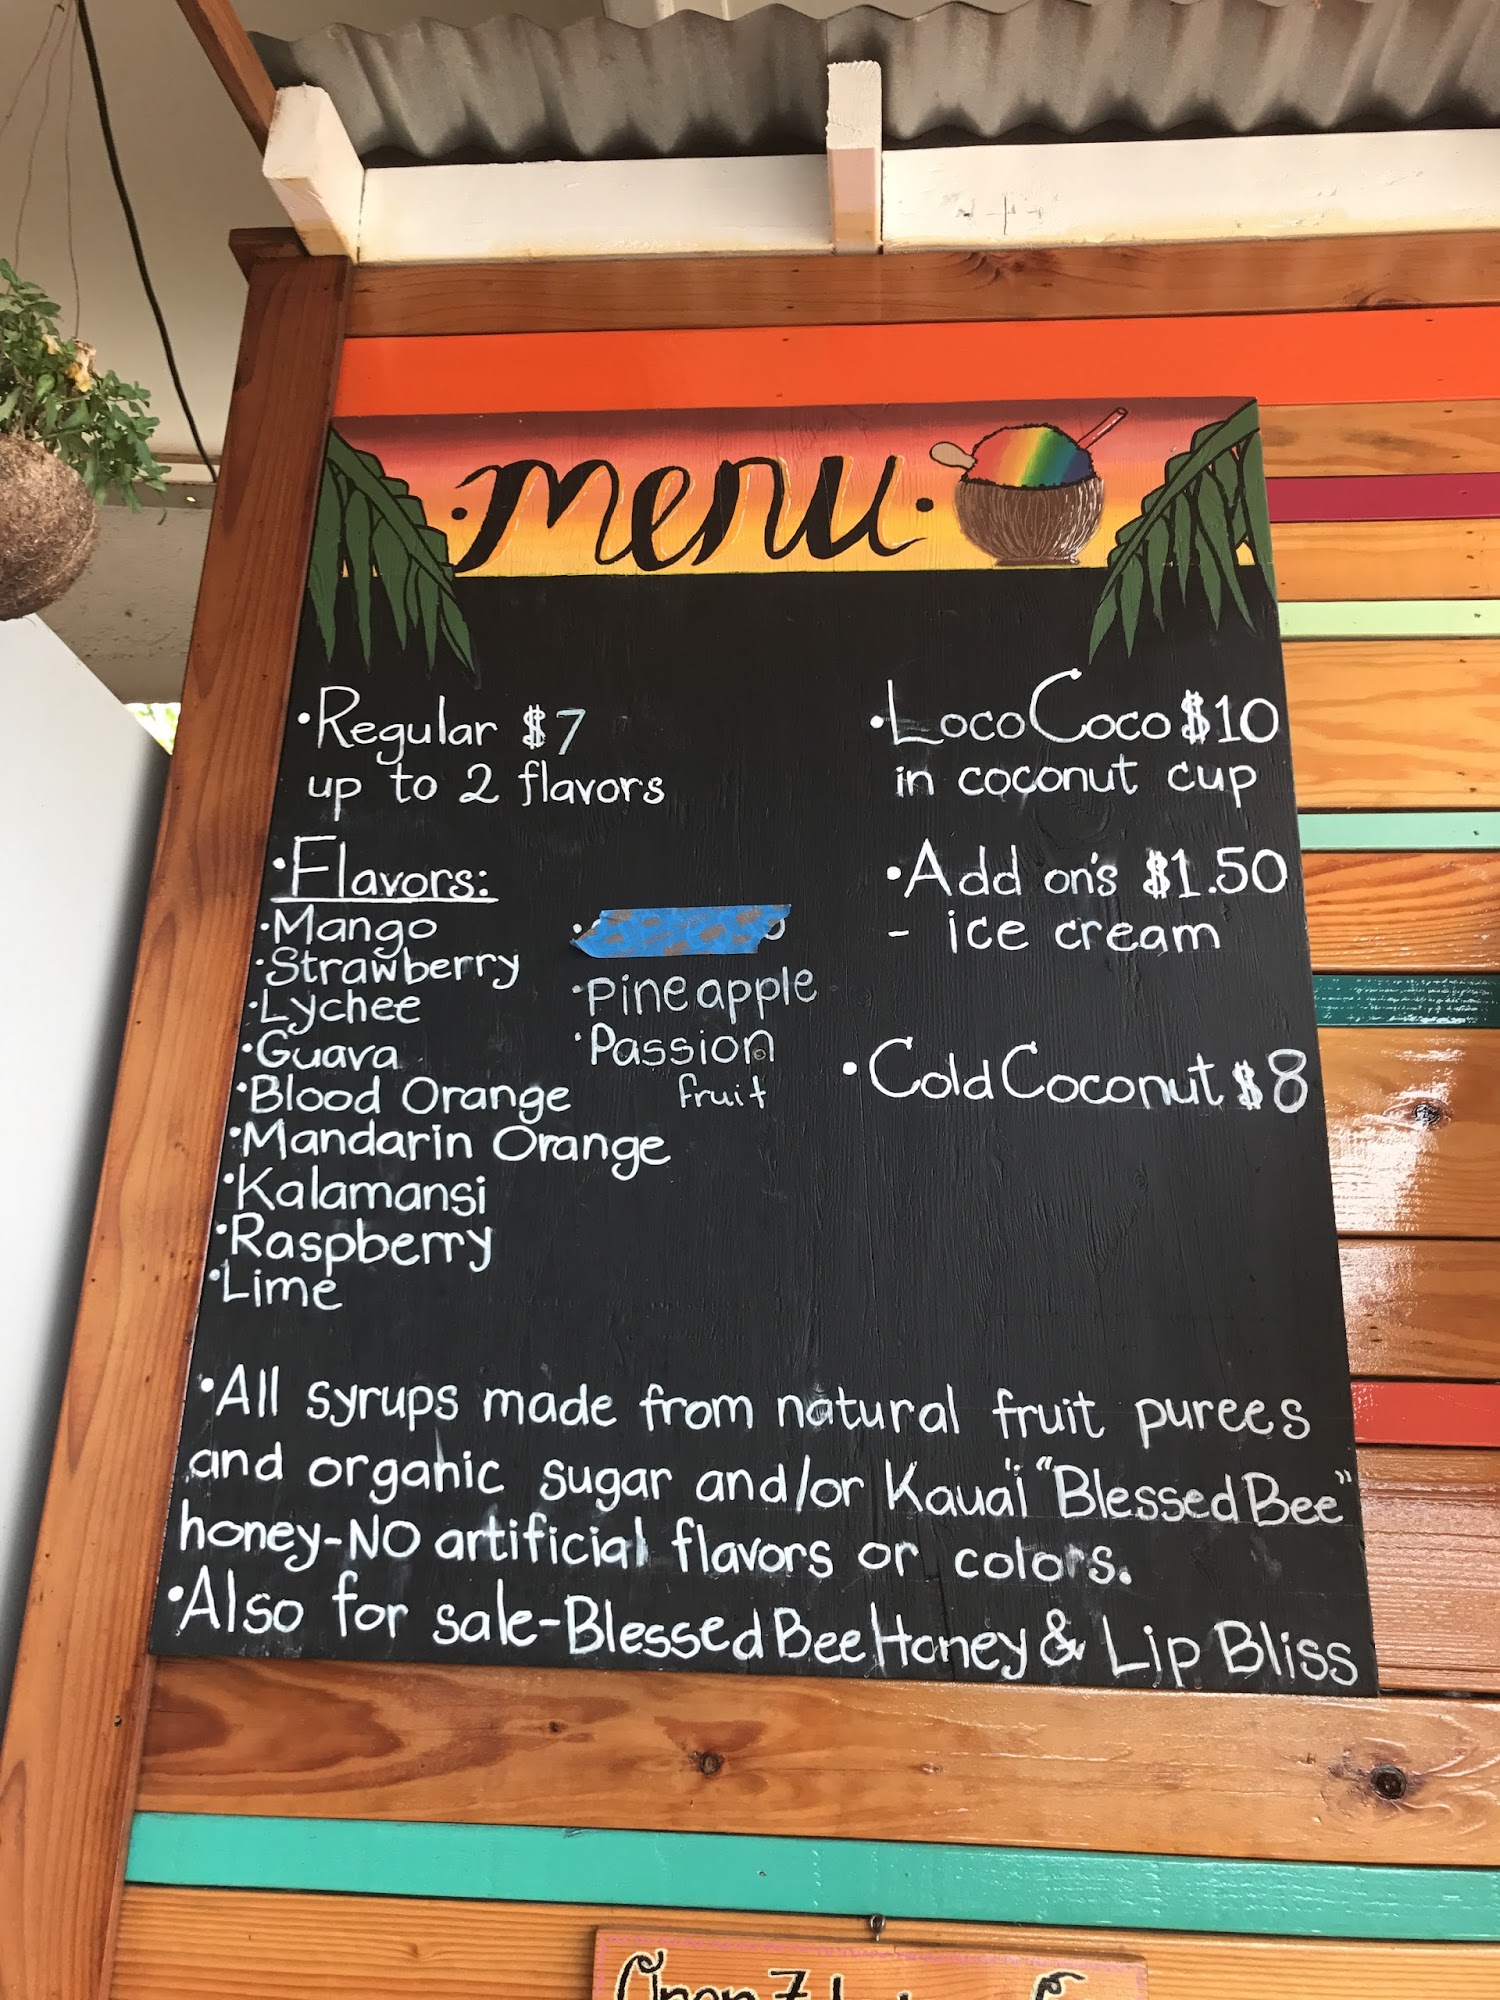 ·menu·
·Regular $7
up to 2 flavors
·Flavors:
·Mango
·Strawberry
·Lychee
·Guava
·Blood Orange
·Mandarin Orange
·Kalamansi
·Raspberry
·Lime
·Pineapple
·Passion
fruit
·LocoCoco $10
in coconut cup
·Add on's $1.50
- ice cream
·Cold Coconut $8
·All syrups made from natural fruit purees
and organic sugar and/or Kaua'i "Blessed Bee"
honey-NO artificial flavors or colors.
·Also for sale-Blessed Bee Honey & Lip Bliss
Open 7